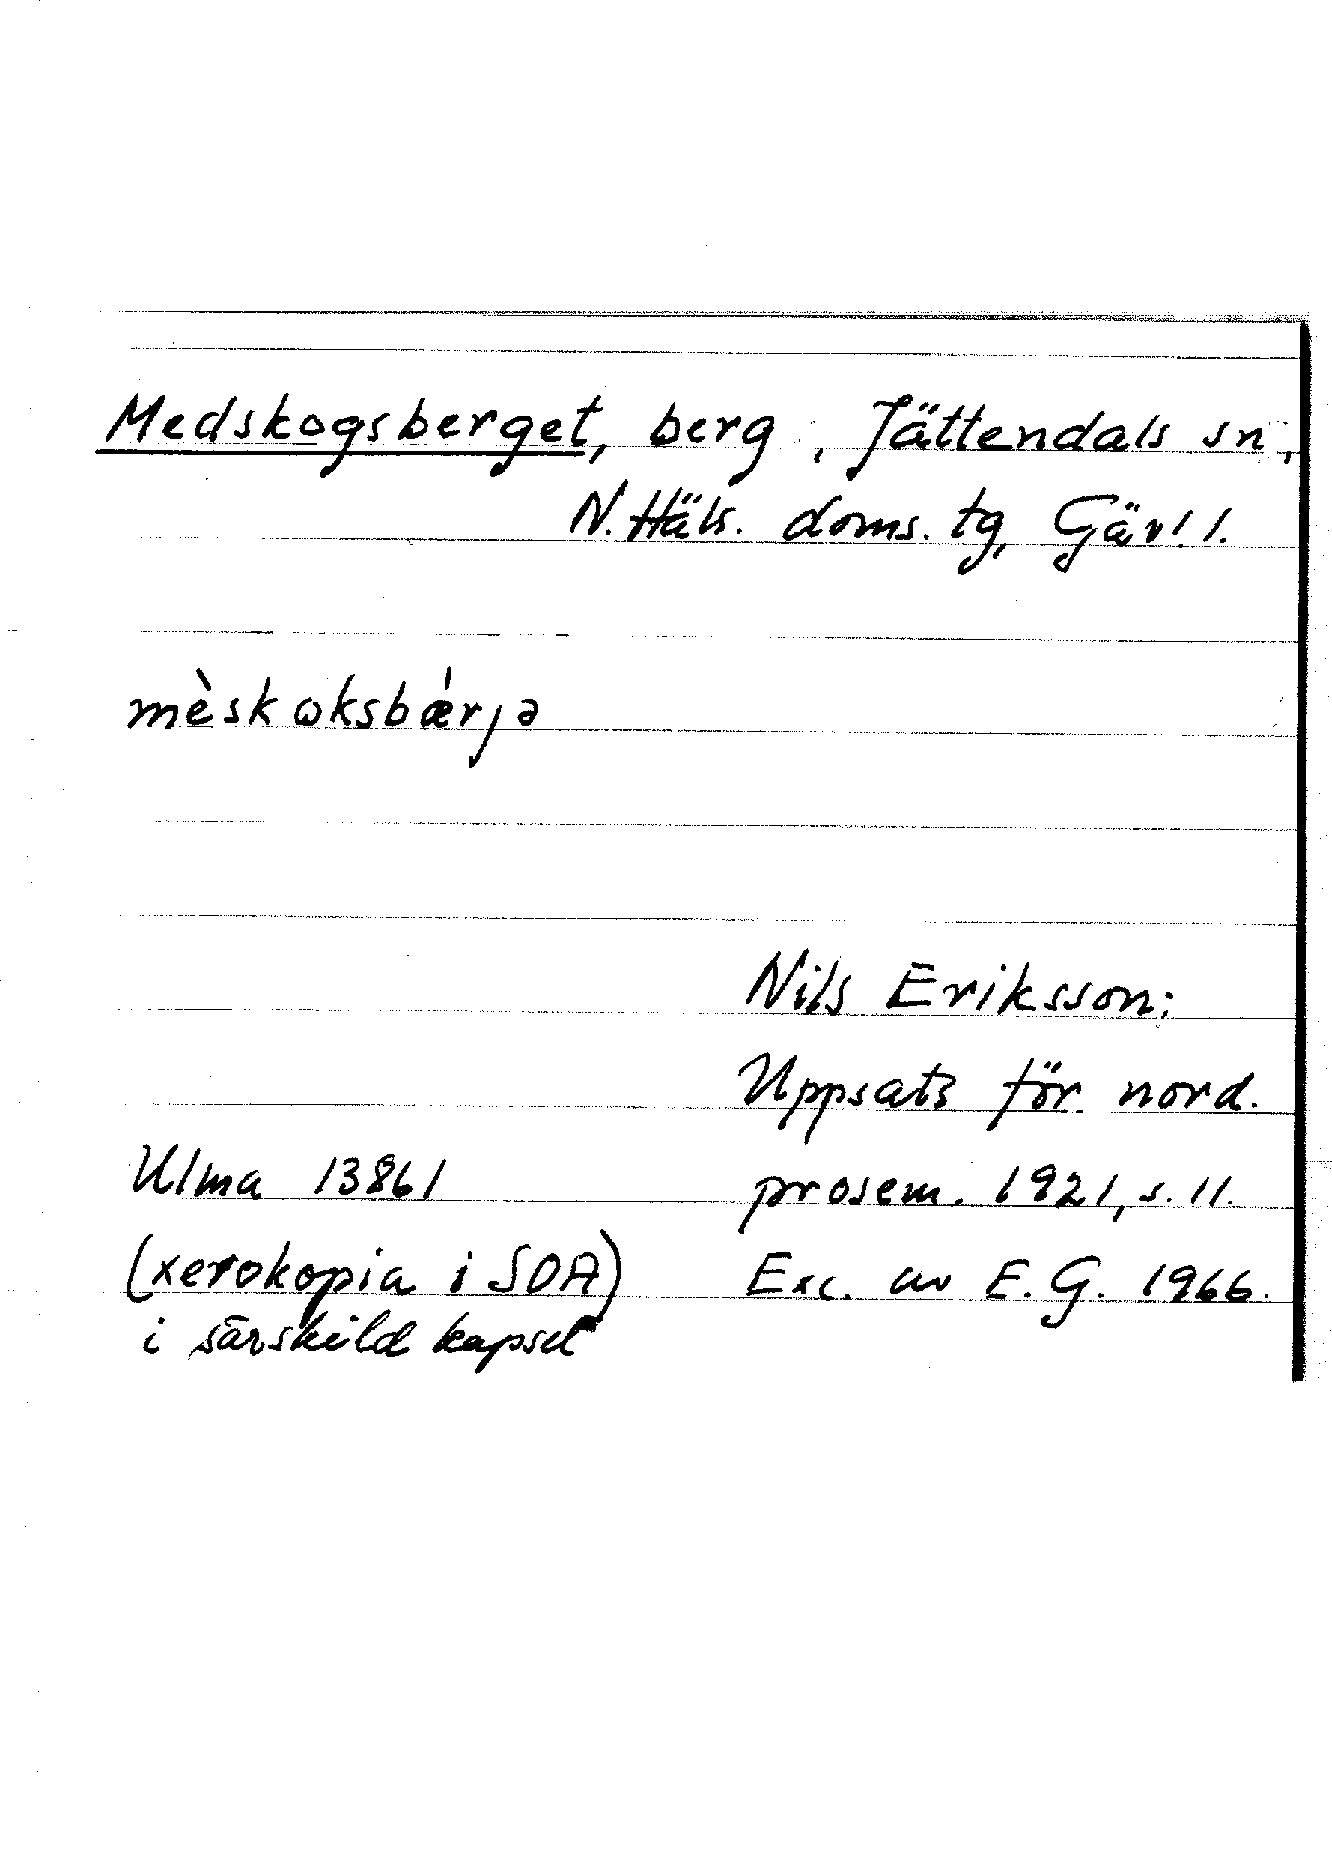 Medskogsberget, berg, Jättendals sn,
N. Häls. doms. tg, Gävl l.
mèskɷksbǽrjə
Nils Eriksson:
Uppsats för nord.
Ulma 13861 prosem. 1921, s. 11.
(xerokopia i SOA) Exc. av E. G. 1966.
i särskild kapsel